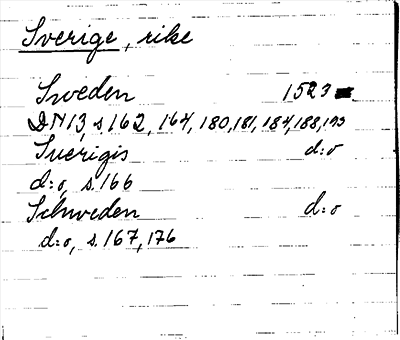 Sverige, rike
Sweden 1523
DN13, s.162, 164, 180,181,184,188,193
Suerigis d:o
d:o, s.166
Schweden d:o
d:o, s.167,176